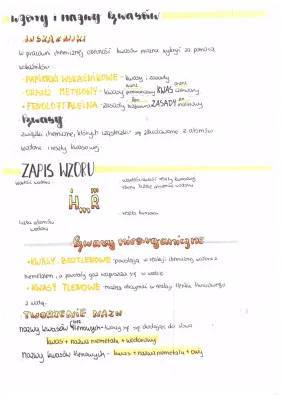 wzory i nazwy kwasów
WSKAŹNIKI
W pracowni chemicznej obecność kwasów można wykryć za pomocą
wskaźników:
• PAPIERKI WSKAŹNIKOWE - kwasy i zasady
• ORANŻ METYLOWY - kwasy KWAS czerwony
• FENOLOFTALEINA - zasady ZASADY malinowy
Kwasy
związki chemiczne, których cząsteczki są zbudowane z atomów
wodoru i reszty kwasowej.
ZAPIS WZORU
H m R
liczba atomów
wodoru
reszta kwasowa
Kwasy nieorganiczne
• KWASY BEZTLENOWE - powstają w reakcji chemicznej wodoru z
niemetalem, a powstały gaz rozpuszcza się w wodzie.
• KWASY TLENOWE - można otrzymać w reakcji tlenku kwasowego
z wodą.
TWORZENIE NAZW
nazwy kwasów beztlenowych - tworzy się dodając do słowa
kwas + nazwa niemetalu + wodorowy
nazwy kwasów tlenowych - kwas + nazwa niemetalu + owy